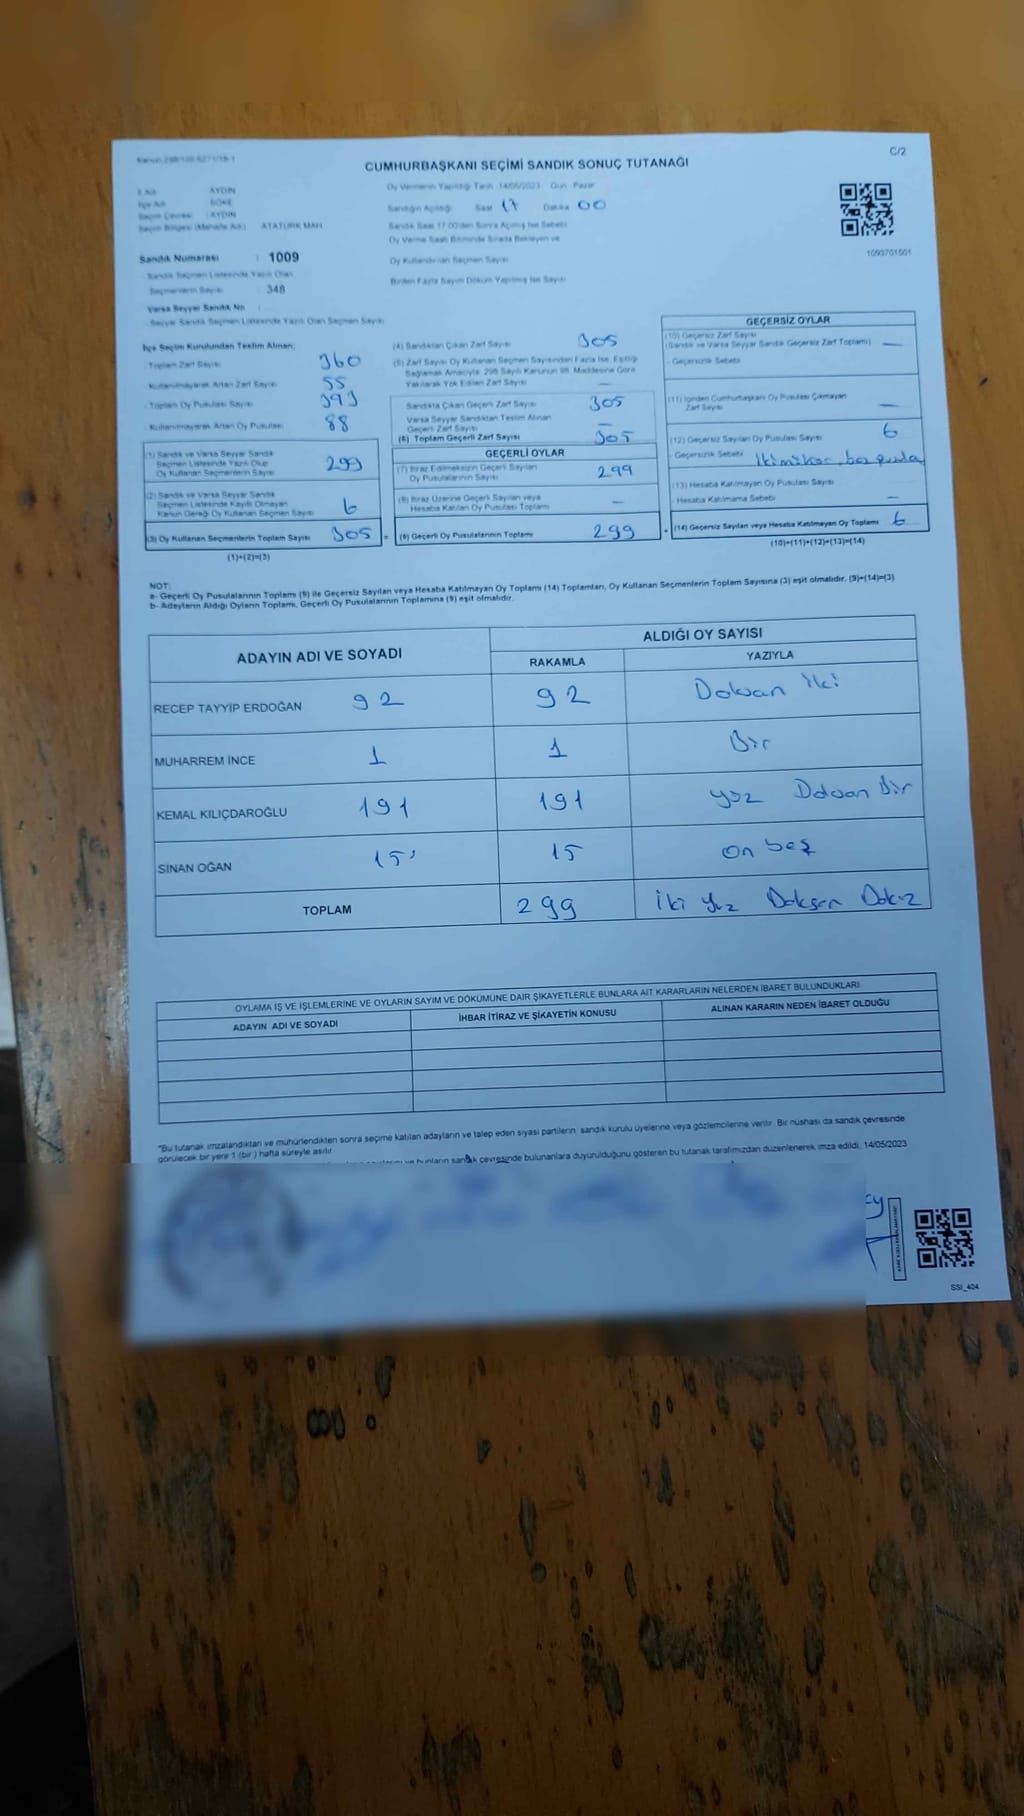 C/2
CUMHURBAŞKANI SEÇİMİ SANDIK SONUÇ TUTANAĞI
İl Adı AYDIN
İlçe Adı SÖKE
Seçim Çevresi : AYDIN
Seçim Bölgesi (Mahalle Adı) ATATÜRK MAH.
Sandık Numarası : 1009
Sandık Seçmen Listesinde Yazılı Olan
Seçmenlerin Sayısı : 348
Varsa Seyyar Sandık No
Seyyar Sandık Seçmen Listesinde Yazılı Olan Seçmen Sayısı
Oy Vermenin Yapıldığı Tarih 14/05/2023 Gün Pazar
Sandığın Açıldığı Saat 17 Dakika 00
Sandık Saat 17.00'den Sonra Açılmış İse Sebebi
Oy Verme Saati Bitiminde Sırada Bekleyen ve
Oy Kullandırılan Seçmen Sayısı
Birden Fazla Sayım Döküm Yapılmış İse Sayısı
1093701601
İlçe Seçim Kurulundan Teslim Alınan;
- Toplam Zarf Sayısı 360
- Kullanılmayarak Artan Zarf Sayısı 55
- Toplam Oy Pusulası Sayısı 393
- Kullanılmayarak Artan Oy Pusulası 88
(1) Sandık ve Varsa Seyyar Sandık
Seçmen Listesinde Yazılı Olup
Oy Kullanan Seçmenlerin Sayısı 299
(2) Sandık ve Varsa Seyyar Sandık
Seçmen Listesinde Kayıtlı Olmayan
Kanun Gereği Oy Kullanan Seçmen Sayısı 6
(3) Oy Kullanan Seçmenlerin Toplam Sayısı 305 =
(1)+(2)=(3)
(4) Sandıktan Çıkan Zarf Sayısı 305
(5) Zarf Sayısı Oy Kullanan Seçmen Sayısından Fazla İse, Eşitliği
Sağlamak Amacıyla; 298 Sayılı Kanunun 98. Maddesine Göre
Yakılarak Yok Edilen Zarf Sayısı —
Sandıkta Çıkan Geçerli Zarf Sayısı 305
Varsa Seyyar Sandıktan Teslim Alınan
Geçerli Zarf Sayısı —
(6) Toplam Geçerli Zarf Sayısı 305
GEÇERLİ OYLAR
(7) İtiraz Edilmeksizin Geçerli Sayılan
Oy Pusulalarının Sayısı 299
(8) İtiraz Üzerine Geçerli Sayılan veya
Hesaba Katılan Oy Pusulası Toplamı —
(9) Geçerli Oy Pusulalarının Toplamı 299 +
GEÇERSİZ OYLAR
(10) Geçersiz Zarf Sayısı
(Sandık ve Varsa Seyyar Sandık Geçersiz Zarf Toplamı) —
- Geçersizlik Sebebi
(11) İçinden Cumhurbaşkanı Oy Pusulası Çıkmayan
Zarf Sayısı —
(12) Geçersiz Sayılan Oy Pusulası Sayısı 6
- Geçersizlik Sebebi
(13) Hesaba Katılmayan Oy Pusulası Sayısı
- Hesaba Katılmama Sebebi —
(14) Geçersiz Sayılan veya Hesaba Katılmayan Oy Toplamı 6
(10)+(11)+(12)+(13)=(14)
NOT:
a- Geçerli Oy Pusulalarının Toplamı (9) ile Geçersiz Sayılan veya Hesaba Katılmayan Oy Toplamı (14) Toplamları, Oy Kullanan Seçmenlerin Toplam Sayısına (3) eşit olmalıdır. (9)+(14)=(3)
b- Adayların Aldığı Oyların Toplamı, Geçerli Oy Pusulalarının Toplamına (9) eşit olmalıdır.
ADAYIN ADI VE SOYADI ALDIĞI OY SAYISI
RAKAMLA YAZIYLA
RECEP TAYYİP ERDOĞAN 92 92 Doksan iki
MUHARREM İNCE 1 1 Bir
KEMAL KILIÇDAROĞLU 191 191 yüz Doksan Bir
SİNAN OĞAN 15 15 on beş
TOPLAM 299 iki yüz Doksan Dokuz
OYLAMA İŞ VE İŞLEMLERİNE VE OYLARIN SAYIM VE DÖKÜMÜNE DAİR ŞİKAYETLERLE BUNLARA AİT KARARLARIN NELERDEN İBARET BULUNDUKLARI
ADAYIN ADI VE SOYADI İHBAR İTİRAZ VE ŞİKAYETİN KONUSU ALINAN KARARIN NEDEN İBARET OLDUĞU
*Bu tutanak imzalandıktan ve mühürlendikten sonra seçime katılan adayların ve talep eden siyasi partilerin sandık kurulu üyelerine veya gözlemcilerine verilir. Bir nüshası da sandık çevresinde
görülecek bir yere 1 (bir) hafta süreyle asılır.
ve bunların sandık çevresinde bulunanlara duyurulduğunu gösteren bu tutanak tarafımızdan düzenlenerek imza edildi. 14/05/2023
SSİ_404